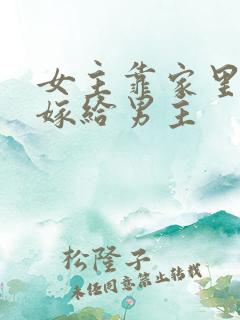 女主靠家里
嫁给男主
松隆子
未经同意禁止转载